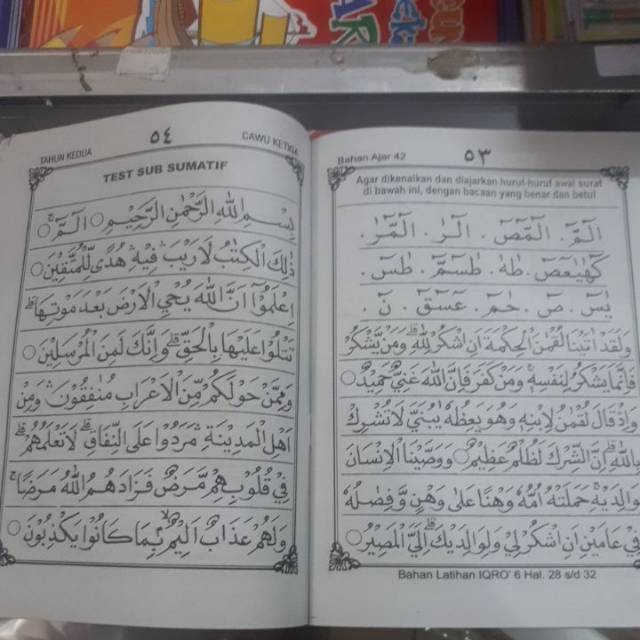 Bahan Ajar 42
٥٣
Agar dikenalkan dan diajarkan huruf-huruf awal surat
di bawah ini, dengan bacaan yang benar dan betul
الٓمّٓ . الٓمّٓصٓ . الٓرٰ . الٓمّٓرٰ .
كٓهٰيٰعٓصٓ . طٰهٰ . طٰسٓمّٓ . طٰسٓ .
يٰسٓ . صٓ . حٰمٓ . عٓسٓقٓ . نٓ .
وَلَقَدْ اٰتَيْنَا لُقْمٰنَ الْحِكْمَةَ اَنِ اشْكُرْ لِلّٰهِ ۗ وَمَنْ يَّشْكُرْ
فَاِنَّمَا يَشْكُرُ لِنَفْسِهٖ ۚ وَمَنْ كَفَرَ فَاِنَّ اللّٰهَ غَنِيٌّ حَمِيْدٌ ○
وَاِذْ قَالَ لُقْمٰنُ لِابْنِهٖ وَهُوَ يَعِظُهٗ يٰبُنَيَّ لَا تُشْرِكْ
بِاللّٰهِ ۗ اِنَّ الشِّرْكَ لَظُلْمٌ عَظِيْمٌ ○ وَوَصَّيْنَا الْاِنْسَانَ
بِوَالِدَيْهِ حَمَلَتْهُ اُمُّهٗ وَهْنًا عَلٰى وَهْنٍ وَّفِصٰلُهٗ
فِيْ عَامَيْنِ اَنِ اشْكُرْ لِيْ وَلِوَالِدَيْكَ ۗ اِلَيَّ الْمَصِيْرُ ○
Bahan Latihan IQRO' 6 Hal. 28 s/d 32
TAHUN KEDUA
٥٤
CAWU KETIGA
TEST SUB SUMATIF
بِسْمِ اللّٰهِ الرَّحْمٰنِ الرَّحِيْمِ ○ الٓمّٓ ۚ ○
ذٰلِكَ الْكِتٰبُ لَا رَيْبَ ۛ فِيْهِ ۛ هُدًى لِّلْمُتَّقِيْنَ ○
اِعْلَمُوْٓا اَنَّ اللّٰهَ يُحْيِ الْاَرْضَ بَعْدَ مَوْتِهَا ۗ
نَتْلُوْهَا عَلَيْكَ بِالْحَقِّ ۗ وَاِنَّكَ لَمِنَ الْمُرْسَلِيْنَ ○
وَمِمَّنْ حَوْلَكُمْ مِّنَ الْاَعْرَابِ مُنٰفِقُوْنَ ۛ وَمِنْ
اَهْلِ الْمَدِيْنَةِ مَرَدُوْا عَلَى النِّفَاقِ ۗ لَا تَعْلَمُهُمْ ۗ
فِيْ قُلُوْبِهِمْ مَّرَضٌ فَزَادَهُمُ اللّٰهُ مَرَضًا ۚ
وَلَهُمْ عَذَابٌ اَلِيْمٌ ۢبِمَا كَانُوْا يَكْذِبُوْنَ ○